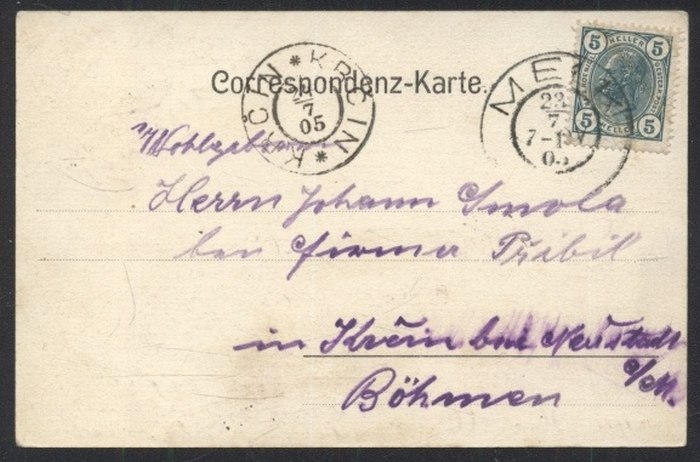 5 HELLER 5
5 HELLER 5
Correspondenz-Karte.
KRČIN * KRČIN *
24
7
05
MELK
23
7
05
Wohlgeboren
Herrn Johann Smola
bei Firma Přibil
in Krčin bei Neustadt
a/M.
Böhmen